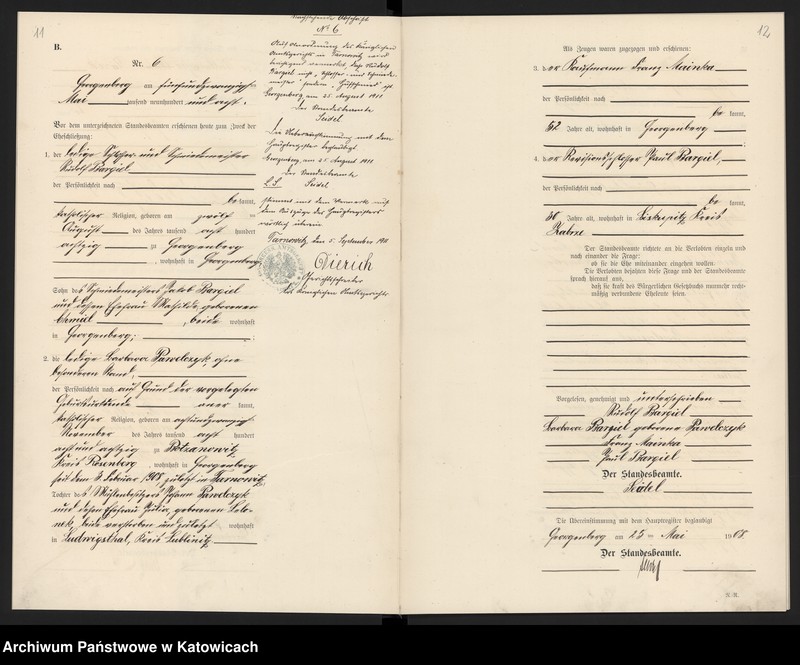 11
B.
Nr. 6
Georgenberg am fünfundzwanzigsten
Mai tausend neunhundert und acht.
Vor dem unterzeichneten Standesbeamten erschienen heute zum Zweck der
Eheschließung:
1. der ledige Schlosser- und Schmiedemeister
Rudolf Bargiel
der Persönlichkeit nach
be kannt,
katholischer Religion, geboren am zwölften
August des Jahres tausend acht hundert
achtzig zu Georgenberg
, wohnhaft in Georgenberg
Sohn des Schmiedemeisters Jakob Bargiel
und dessen Ehefrau Mathilde, geborenen
Chmiel, beide wohnhaft
in Georgenberg;
2. die ledige Barbara Pawelczyk, ohne
besonderen Stand,
der Persönlichkeit nach auf Grund der vorgelegten
Geburtsurkunde aner kannt,
katholischer Religion, geboren am achtundzwanzigsten
November des Jahres tausend acht hundert
achtundachtzig zu
Kreis Rosenberg, wohnhaft in Georgenberg
seit dem Februar 1908 zuletzt in Tarnowitz,
Tochter des Mühlenbesitzers Johann Pawelczyk
und dessen Ehefrau Julie, geborenen
beide verstorben und zuletzt wohnhaft
in Ludwigsthal, Kreis Lublinitz
Nachstehende Abschrift
No 6
Auf Anordnung des Königlichen
Amtsgerichts in Tarnowitz wird
berichtigend vermerkt, daß Rudolf
Bargiel nicht „Schlosser- und Schmiede-
meister" sondern „Hufschmied" ist.
Georgenberg am 25. August 1911.
Der Standesbeamte
Seidel
Die Übereinstimmung mit dem
Hauptregister beglaubigt
Georgenberg, am 25. August 1911
Der Standesbeamte
L.S. Seidel
stimmt mit dem Vermerk auf
dem Auszuge des Hauptregisters
wörtlich überein
Tarnowitz, den 5. September 1911
Dierich
Gerichtsschreiber
des Königlichen Amtsgerichts
12
Als Zeugen waren zugezogen und erschienen:
3. der Kaufmann Franz Mainka
der Persönlichkeit nach
be kannt,
62 Jahre alt, wohnhaft in Georgenberg
4. der Revisionsschlosser Paul Bargiel,
der Persönlichkeit nach
be kannt,
36 Jahre alt, wohnhaft in Biskupitz Kreis
Zabrze
Der Standesbeamte richtete an die Verlobten einzeln und
nach einander die Frage:
ob sie die Ehe miteinander eingehen wollen.
Die Verlobten bejahten diese Frage und der Standesbeamte
sprach hierauf aus,
daß sie kraft des Bürgerlichen Gesetzbuchs nunmehr recht-
mäßig verbundene Eheleute seien.
Vorgelesen, genehmigt und unterschrieben
Rudolf Bargiel
Barbara Bargiel geborene Pawelczyk
Franz Mainka
Paul Bargiel
Der Standesbeamte.
Seidel
Die Übereinstimmung mit dem Hauptregister beglaubigt
Georgenberg am 25 ten Mai 1908.
Der Standesbeamte.
Seidel
Archiwum Państwowe w Katowicach